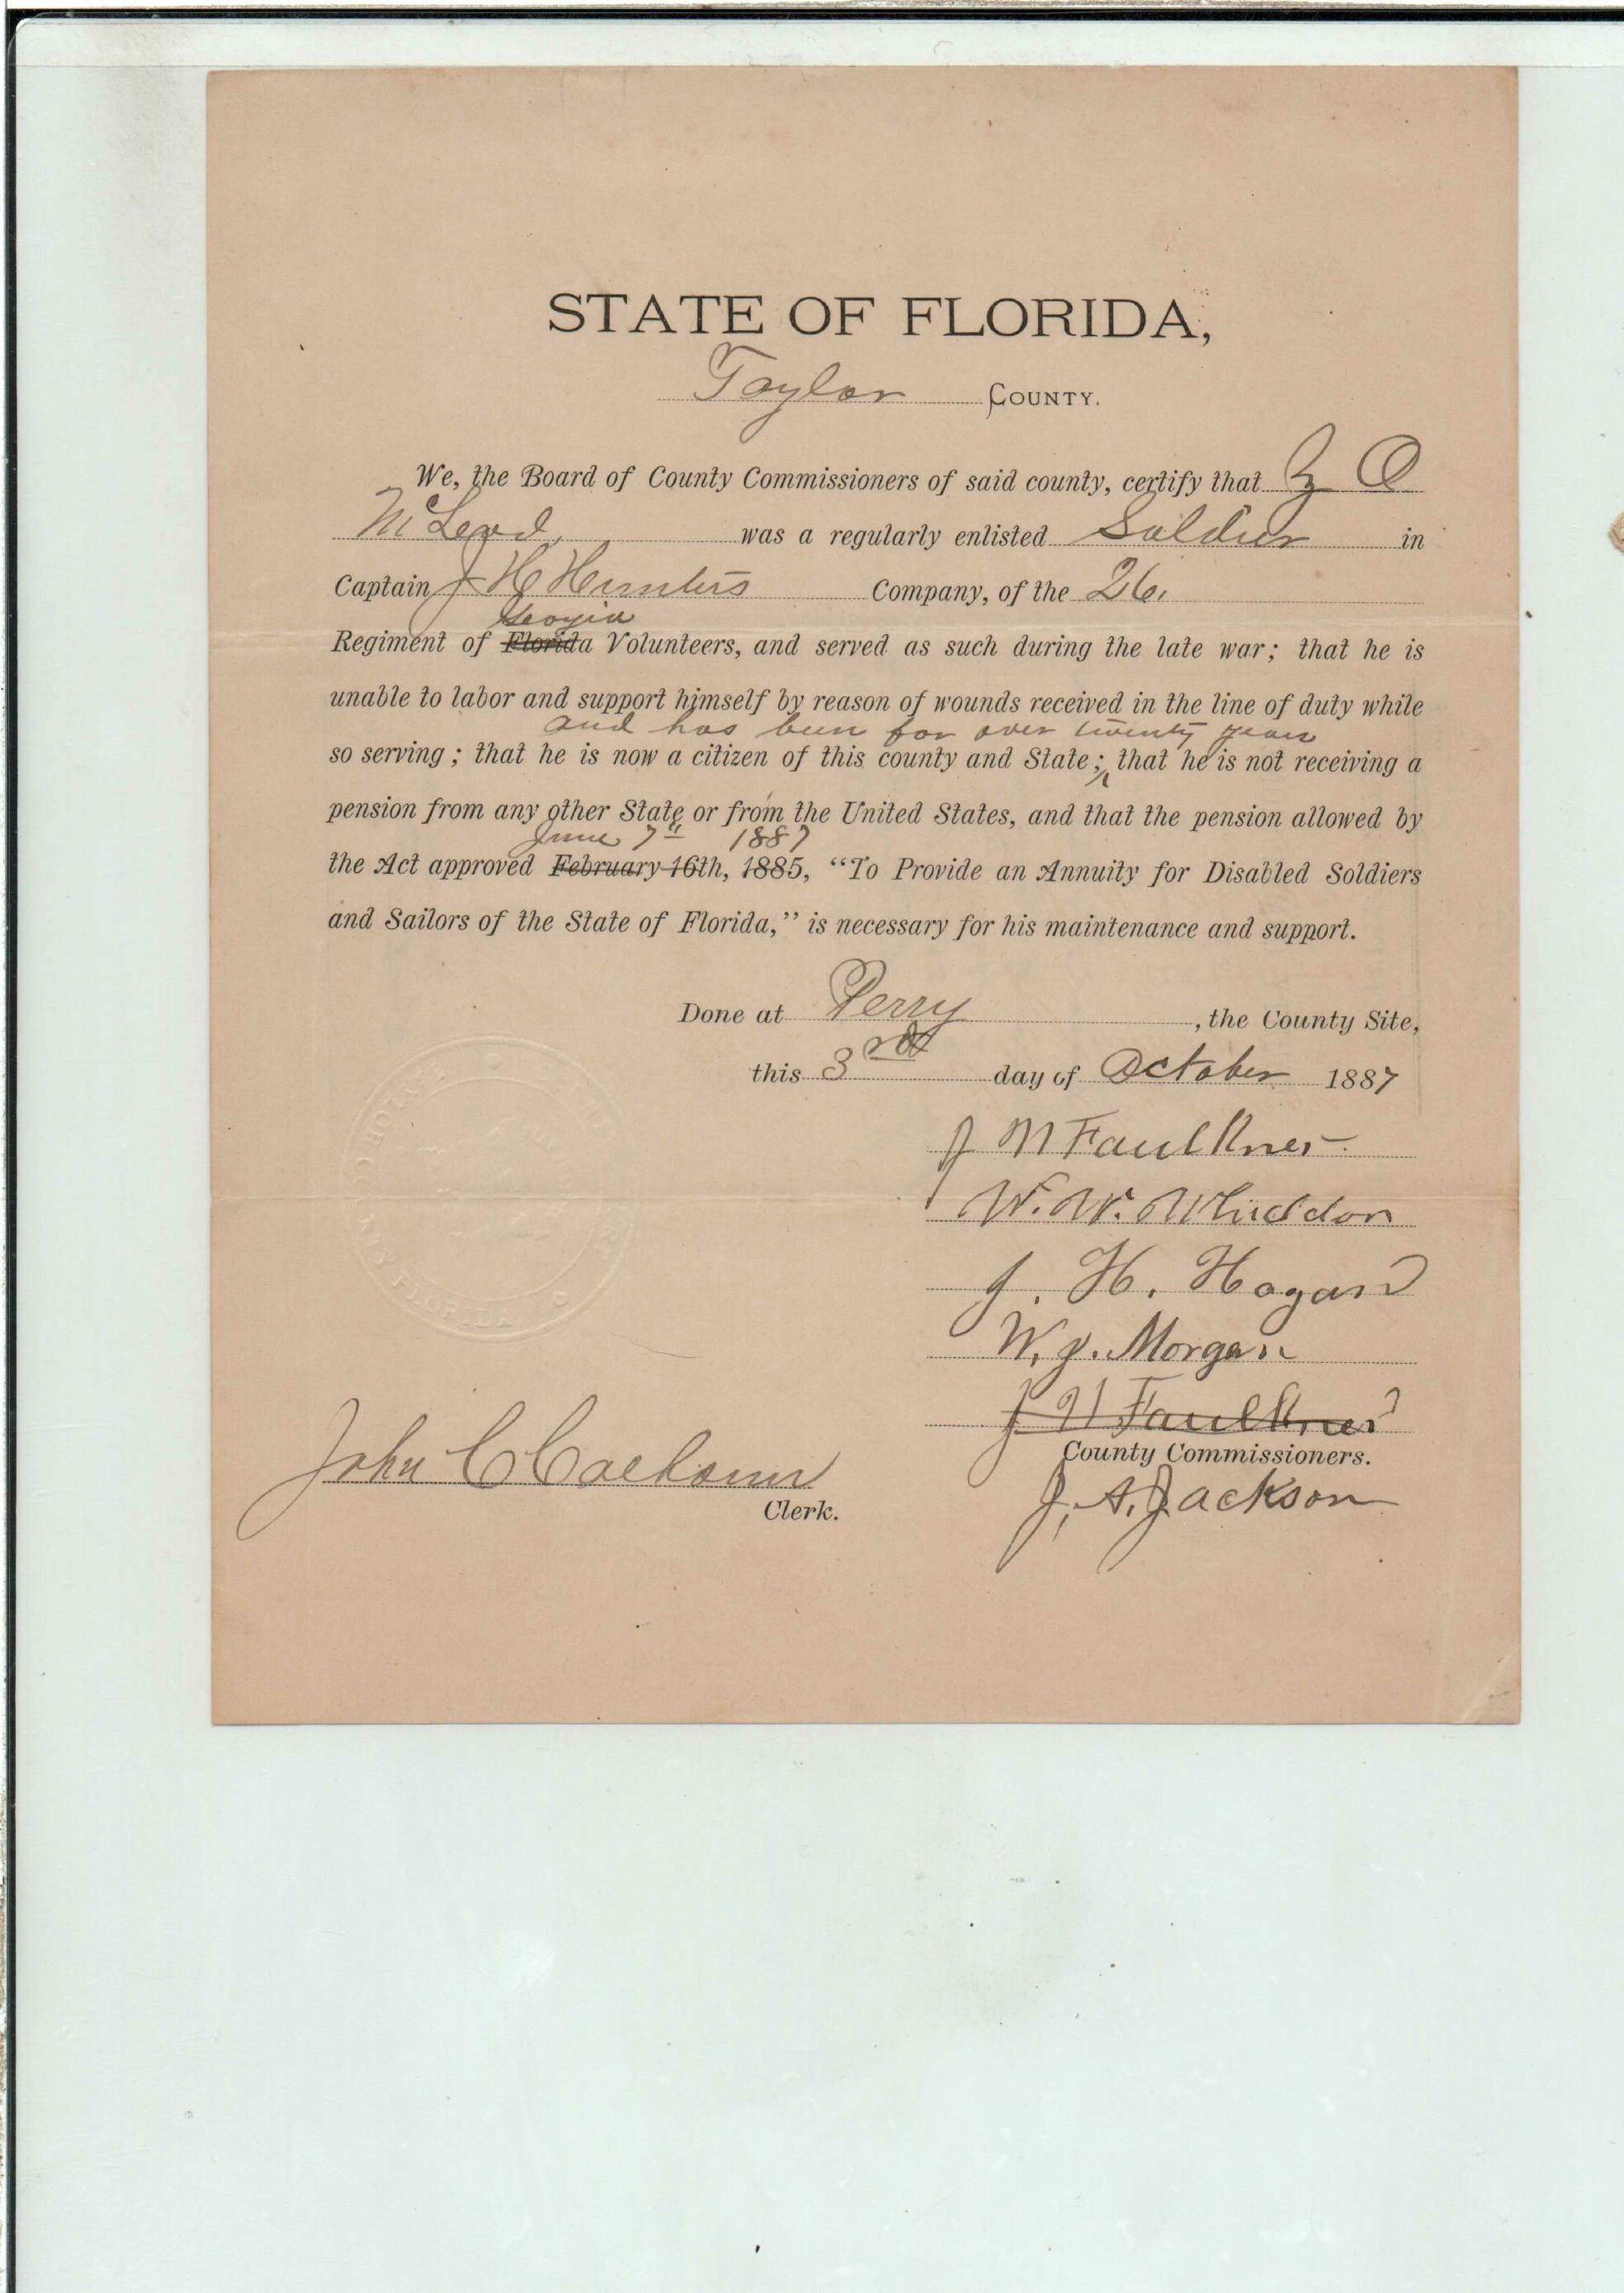 STATE OF FLORIDA,
Taylor COUNTY.
We, the Board of County Commissioners of said county, certify that Z O
McLeod, was a regularly enlisted Soldier in
Captain J H Hunters Company, of the 26.
Georgia
Regiment of Florida Volunteers, and served as such during the late war; that he is
unable to labor and support himself by reason of wounds received in the line of duty while
and has been for over twenty years
so serving; that he is now a citizen of this county and State; that he is not receiving a
pension from any other State or from the United States, and that the pension allowed by
June 7th 1887
the Act approved February 16th, 1885, "To Provide an Annuity for Disabled Soldiers
and Sailors of the State of Florida," is necessary for his maintenance and support.
Done at Perry, the County Site,
this 3rd day of October 1887
J N Faulkner
W. W. Whiddon
J. H. Hogan
W. J. Morgan
J N Faulkner
County Commissioners.
John C Calhoun
J. A. Jackson
Clerk.
FLORIDA